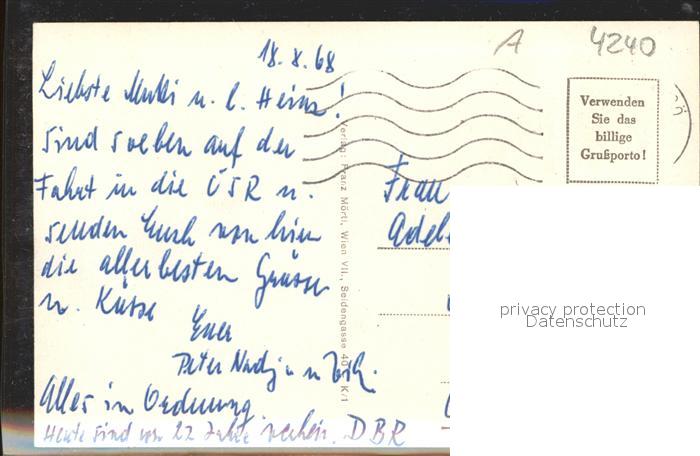 A
4240
18.8.68
Liebste Mutti u. l. Heinz!
Sind soeben auf der
Fahrt in die ČSR u.
senden Euch von hier
die allerbesten Grüsse
u. Küsse
Euer
Peter
Alles in Ordnung
Heute sind vor 22 Jahre DBR
Verlag: Franz Mörtl, Wien VII., Seidengasse K/1
Verwenden
Sie das
billige
Grußporto!
Frau
privacy protection
Datenschutz